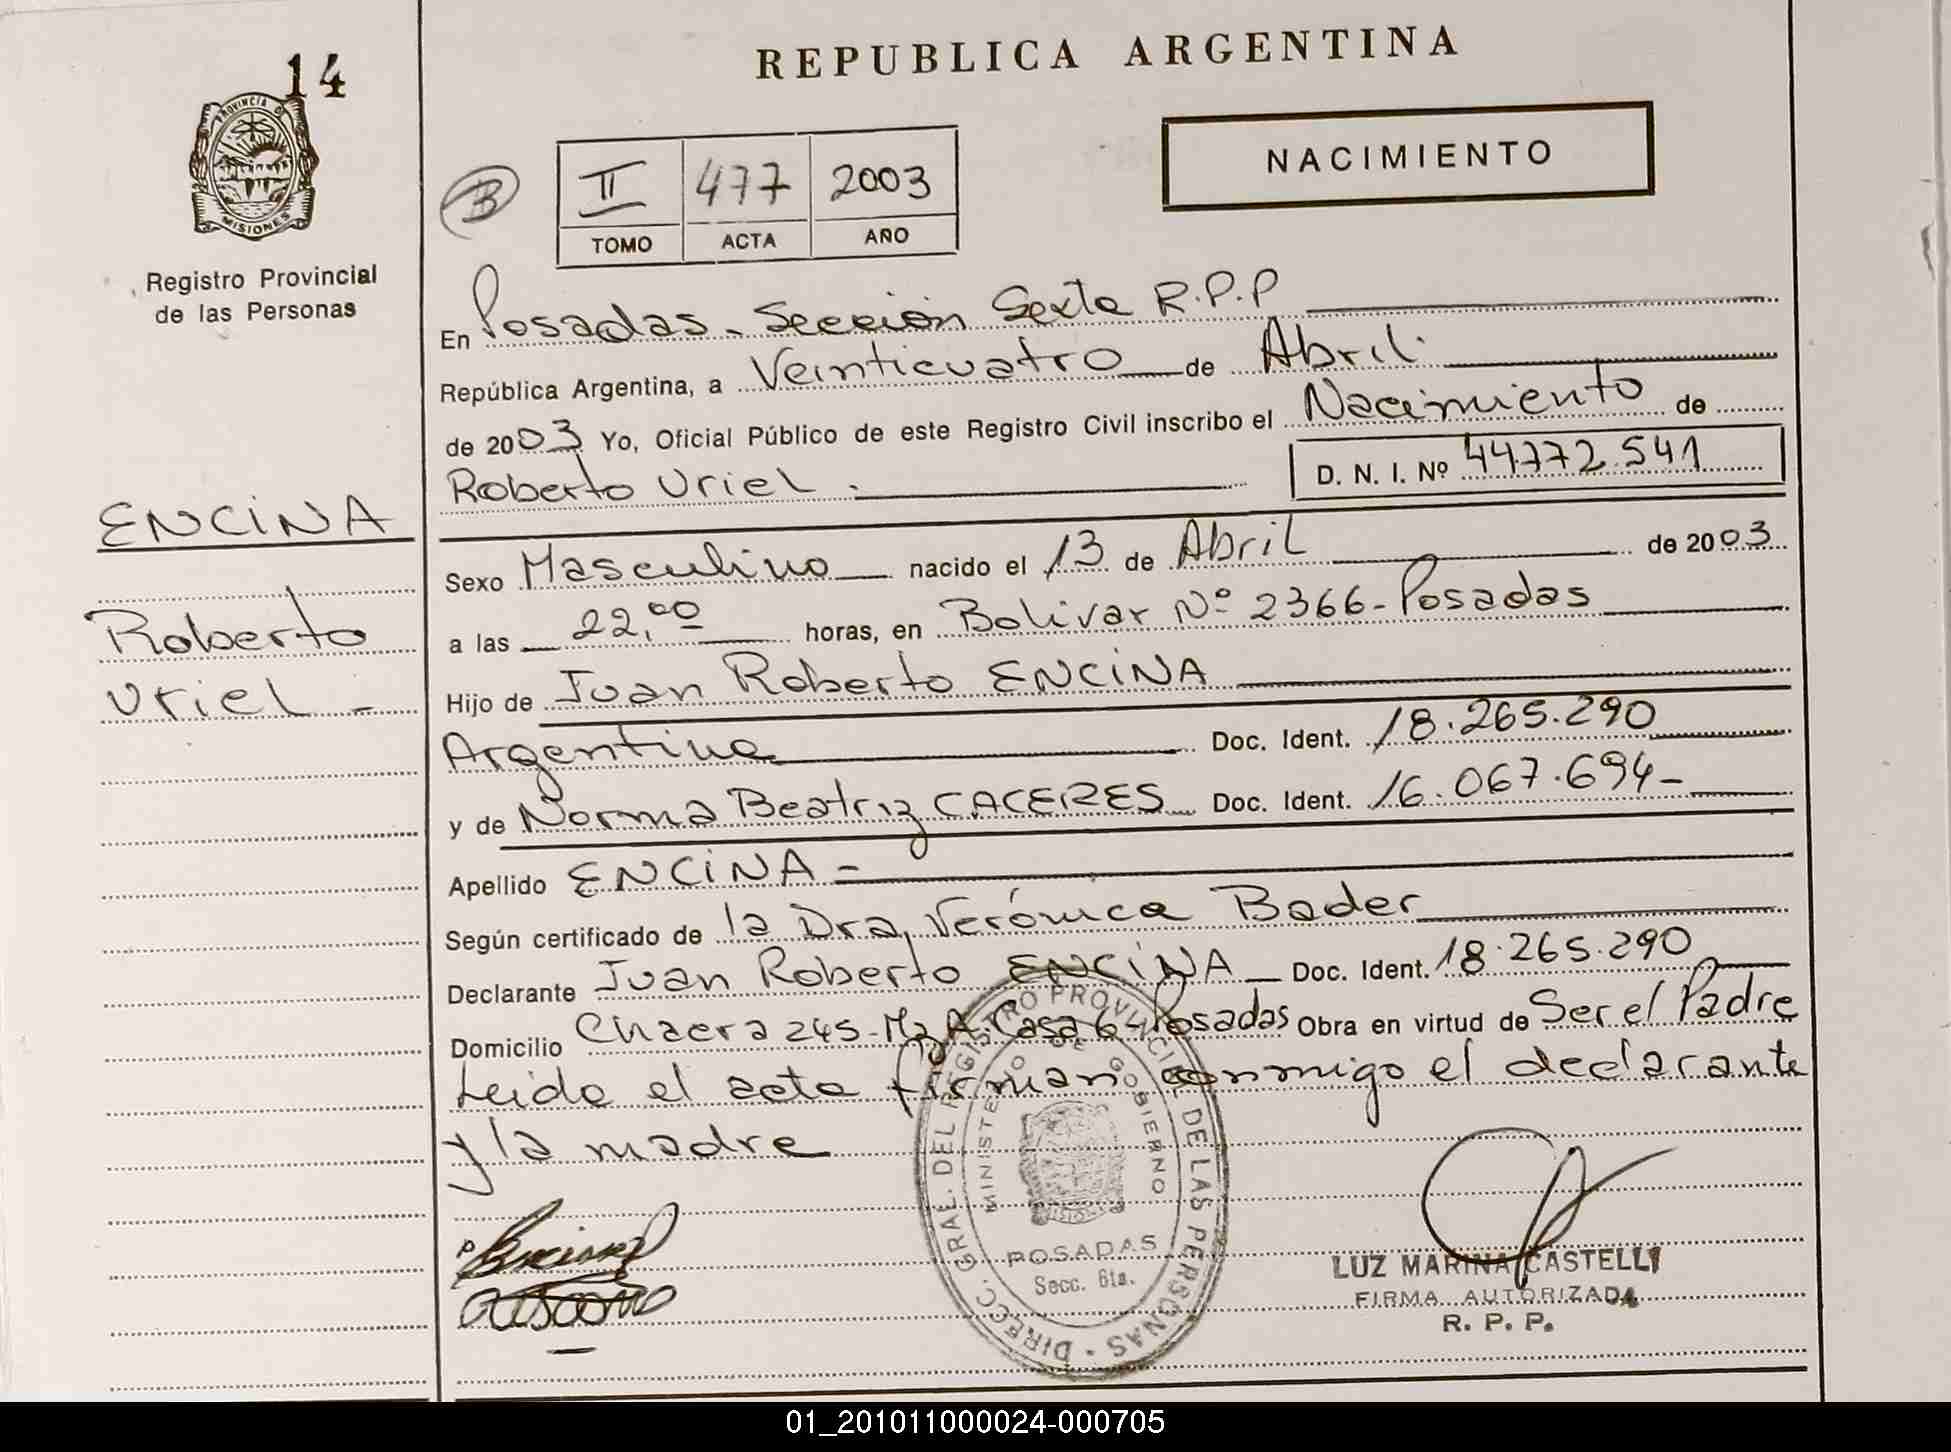 14
PROVINCIA DE
MISIONES
Registro Provincial
de las Personas
ENCINA
Roberto
Uriel -
REPUBLICA ARGENTINA
B
II 477 2003
TOMO ACTA AÑO
NACIMIENTO
En Posadas - Sección Sexta R.P.P
República Argentina, a Veinticuatro de Abril
de 2003 Yo, Oficial Público de este Registro Civil inscribo el Nacimiento de
Roberto Uriel.
D. N. I. Nº 44.772.541
Sexo Masculino nacido el 13 de Abril de 2003
a las 22,00 horas, en Bolivar Nº 2366 - Posadas
Hijo de Juan Roberto ENCINA
Argentina Doc. Ident. 18.265.290
y de Norma Beatriz CACERES Doc. Ident. 16.067.694-
Apellido ENCINA -
Según certificado de la Dra. Verónica Bader
Declarante Juan Roberto ENCINA Doc. Ident. 18.265.290
Domicilio Chacra 245 - Mz A. Casa 6 - Posadas Obra en virtud de Ser el Padre
Leida el acta firman conmigo el declarante
y la madre
DIRECC. GRAL. DEL REGISTRO PROVINCIAL DE LAS PERSONAS -
MINISTERIO DE GOBIERNO
MISIONES
POSADAS
Secc. 6ta.
LUZ MARINA CASTELLI
FIRMA AUTORIZADA
R. P. P.
01_201011000024-000705